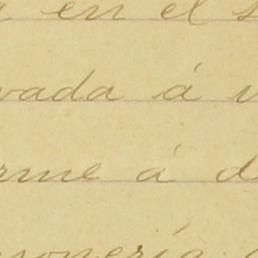 en el
vada á
rme á d
onería